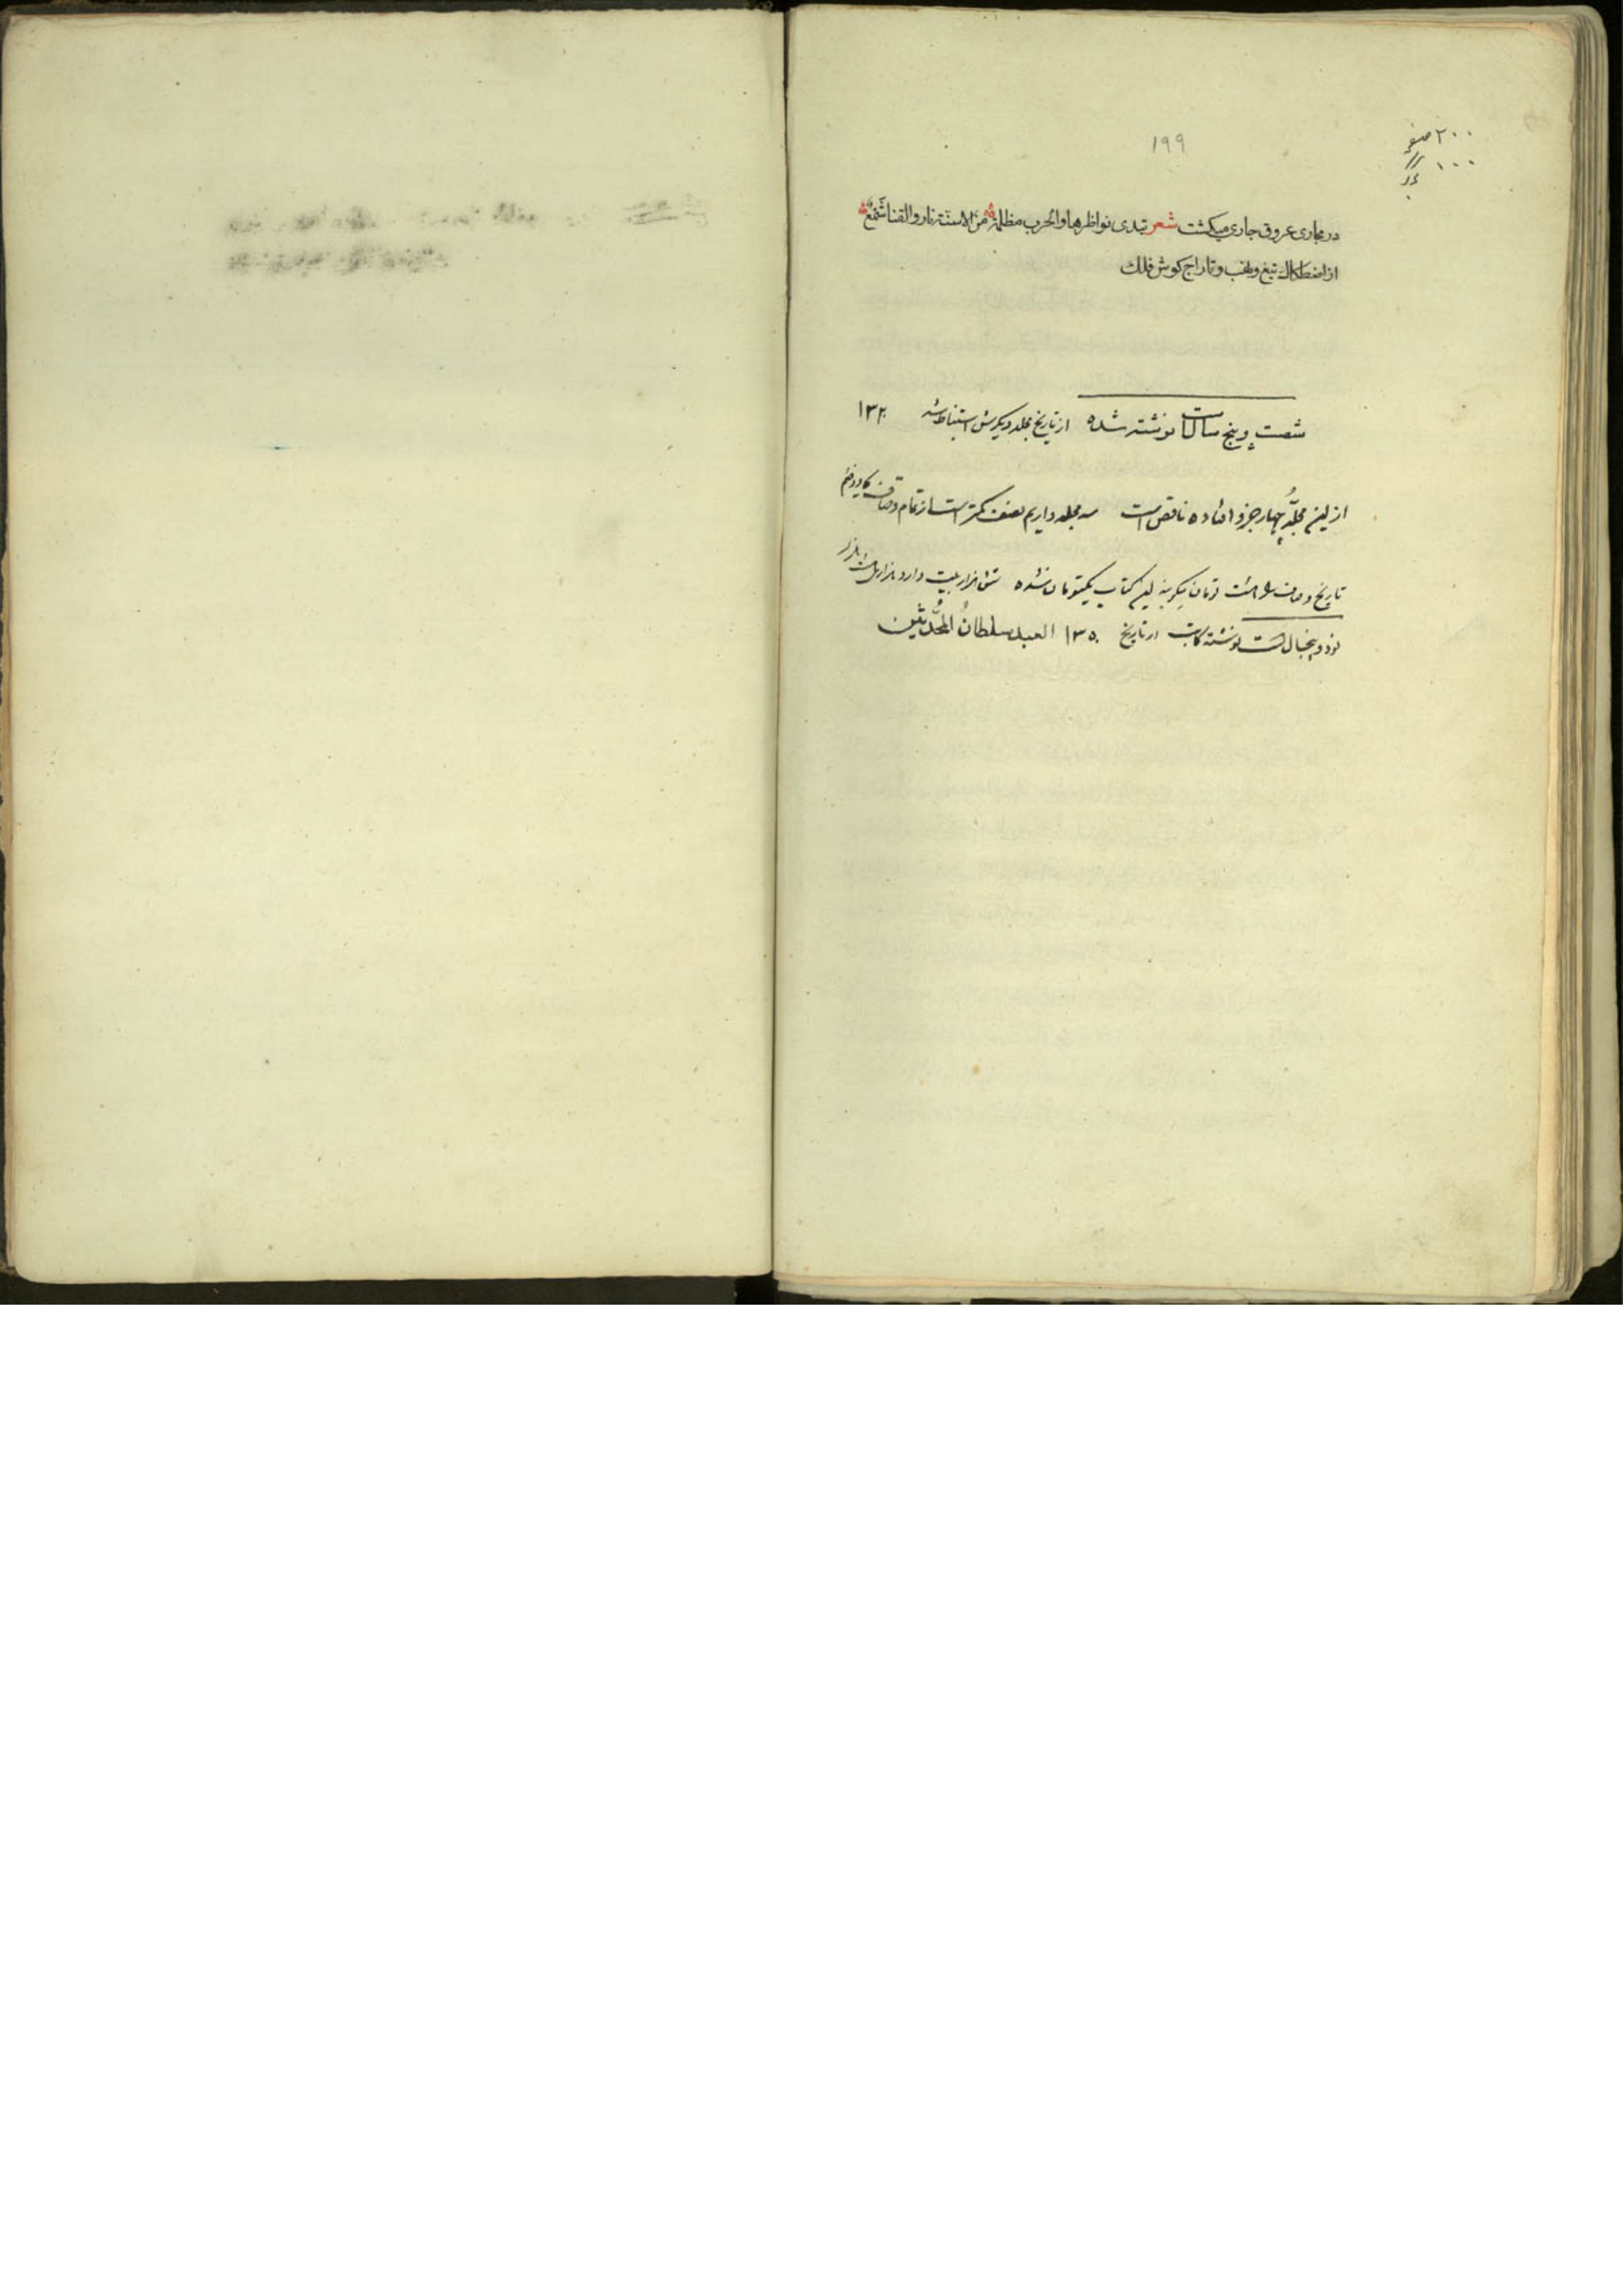 ۱۹۹
۲۰۰ صفحه
۱۰۰
در مجاری عروق جاری میکشت شعر تبدی نواظرها والحرب مظلمة من الاسنة نار والقنا شمع
از اصطکاک تیغ و نهب و تاراج کوش فلک
شصت و پنج سالست نوشته شده از تاریخ مجلد دیگرش استنباط شد ۱۳۲۰
از این مجلد چهار جزو افتاده ناقص است سه مجلد داریم نصف کمتر است از تمام وصاف
تاریخ وصاف تومان این کتاب یکتومان شده هزار بیت دارد
نود و پنجسال است نوشته کتابت از تاریخ ۱۳۵۰ العبد سلطان المحدثین